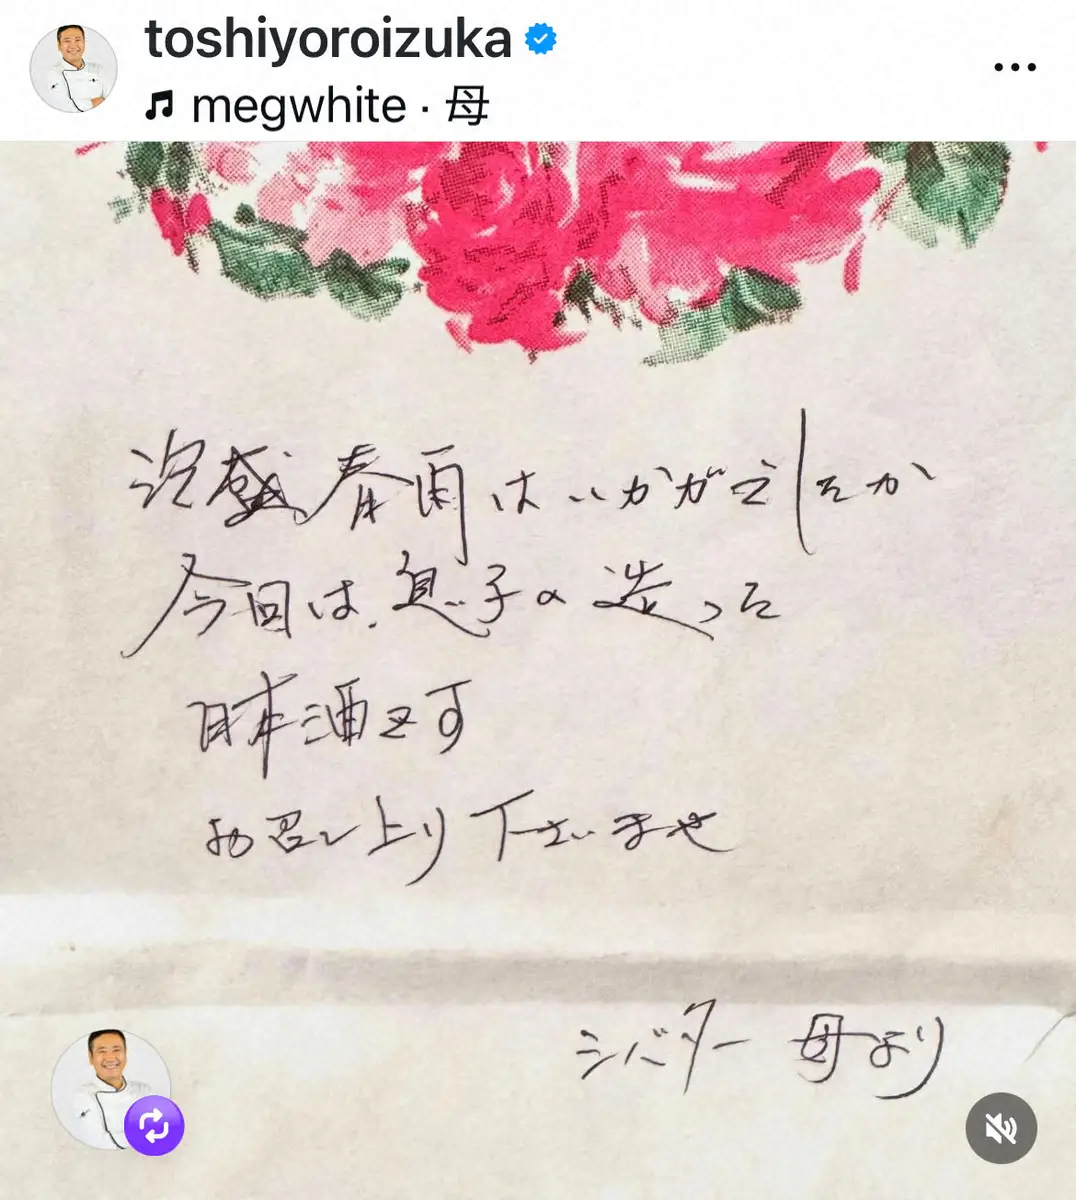 toshiyoroizuka
megwhite · 母
泡盛春雨はいかがでしたか
今回は、息子の造った
日本酒です
お召し上り下さいませ
シバター 母より